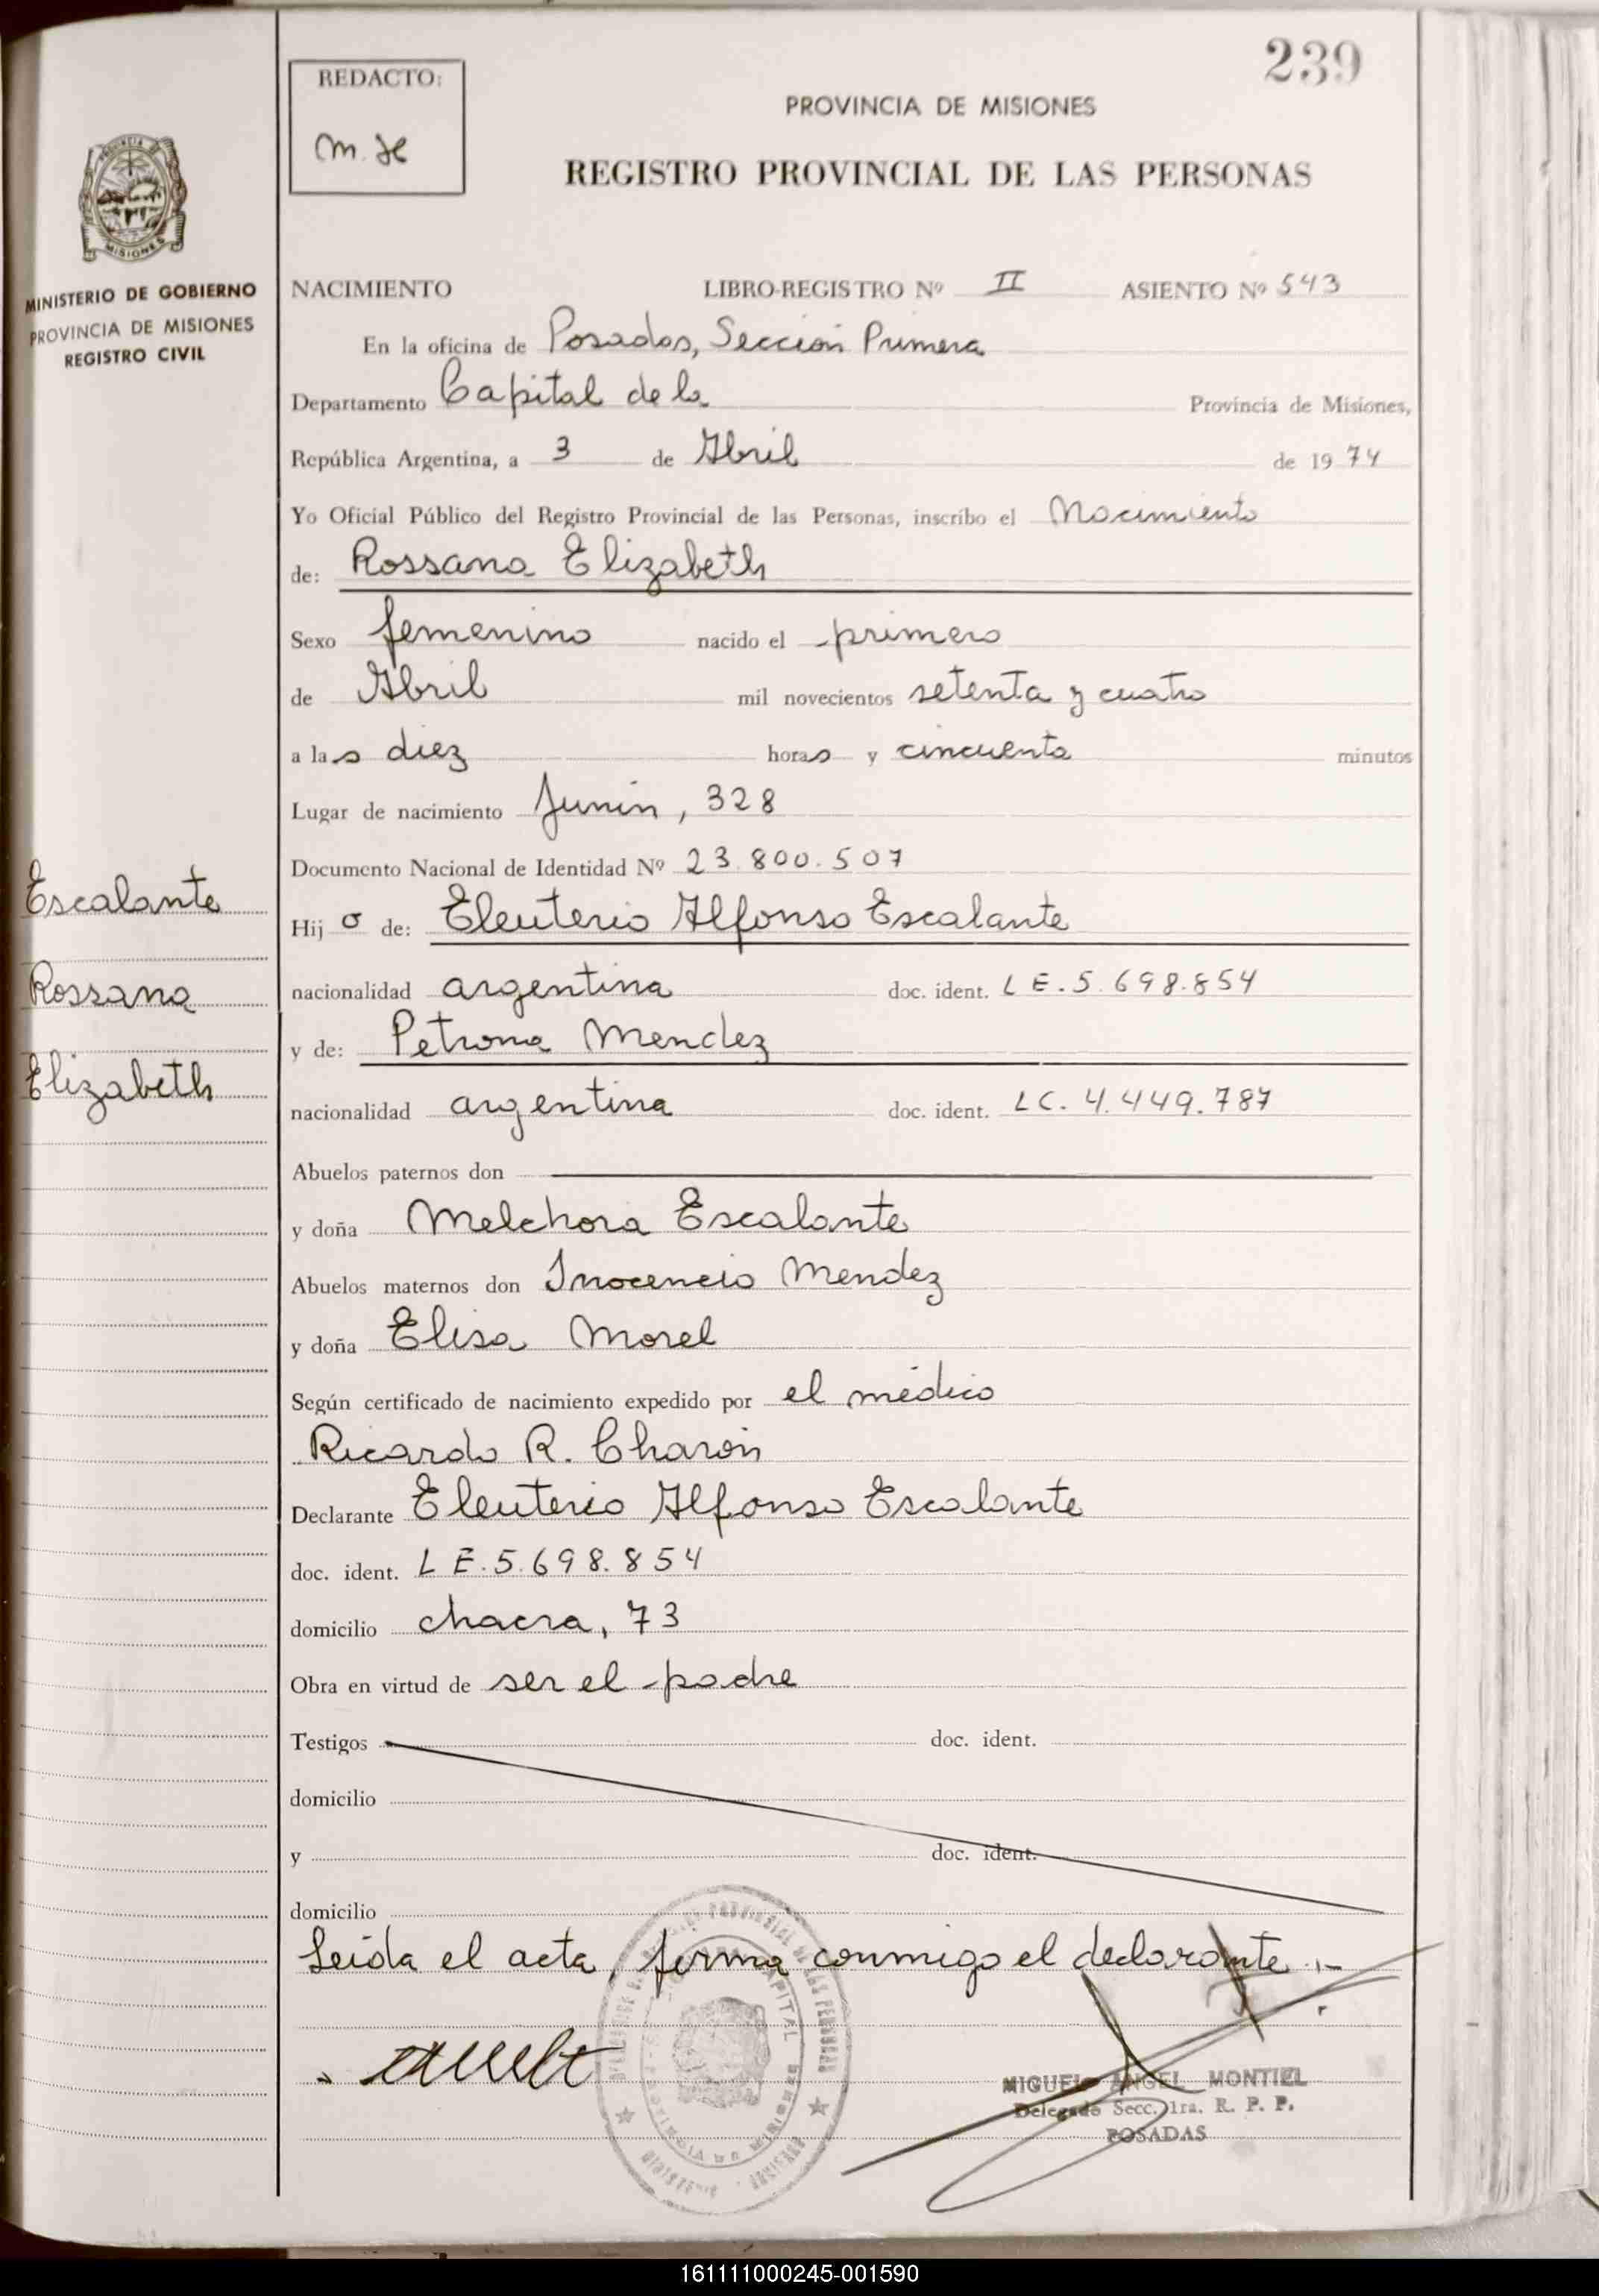 239
REDACTO:
PROVINCIA DE MISIONES
REGISTRO PROVINCIAL DE LAS PERSONAS
MISIONES
MINISTERIO DE GOBIERNO
PROVINCIA DE MISIONES
REGISTRO CIVIL
NACIMIENTO LIBRO-REGISTRO Nº II ASIENTO Nº 543
En la oficina de Posadas, Sección Primera
Departamento Capital de la Provincia de Misiones,
República Argentina, a 3 de Abril de 1974
Yo Oficial Público del Registro Provincial de las Personas, inscribo el Nacimiento
de: Rossana Elizabeth
Sexo femenino nacido el primero
de Abril mil novecientos setenta y cuatro
a las diez horas y cincuenta minutos
Lugar de nacimiento Junín, 328
Documento Nacional de Identidad Nº 23.800.507
Escalante
Rossana
Elizabeth
Hij a de: Eleuterio Alfonso Escalante
nacionalidad argentina doc. ident. LE.5.698.854
y de: Petrona Mendez
nacionalidad argentina doc. ident. LC.4.449.787
Abuelos paternos don
y doña Melchora Escalante
Abuelos maternos don Inocencio Mendez
y doña Elisa Morel
Según certificado de nacimiento expedido por el médico
Ricardo R. Charón
Declarante Eleuterio Alfonso Escalante
doc. ident. LE.5.698.854
domicilio chacra, 73
Obra en virtud de ser el padre
Testigos doc. ident.
domicilio
y doc. ident.
domicilio
Leída el acta, firma conmigo el declarante.-
MIGUEL ANGEL MONTIEL
Delegado Secc. 1ra. R. P. P.
POSADAS
161111000245-001590